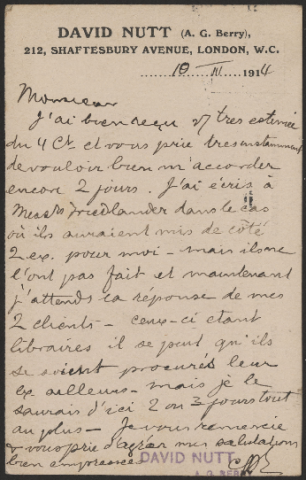 DAVID NUTT (A. G. Berry),
212, SHAFTESBURY AVENUE, LONDON, W.C.
10 III 1914
Monsieur
J'ai bien reçu v/ tres estimée
du 4 Ct. et vous prie tres instamment
de vouloir bien m'accorder
encore 2 jours. J'ai écris à
Messrs Friedlander dans le cas
où ils auraient mis de côté
2 ex. pour moi - mais ils ne
l'ont pas fait et maintenant
j'attends la réponse de mes
2 clients - ceux-ci etant
libraires il se peut qu'ils
se soient procurés leur
ex ailleurs - mais je le
saurais d'ici 2 ou 3 jours tout
au plus - Je vous remercie
& vous prie d'agréer mes salutations
bien empressées
DAVID NUTT
A. G. BERRY